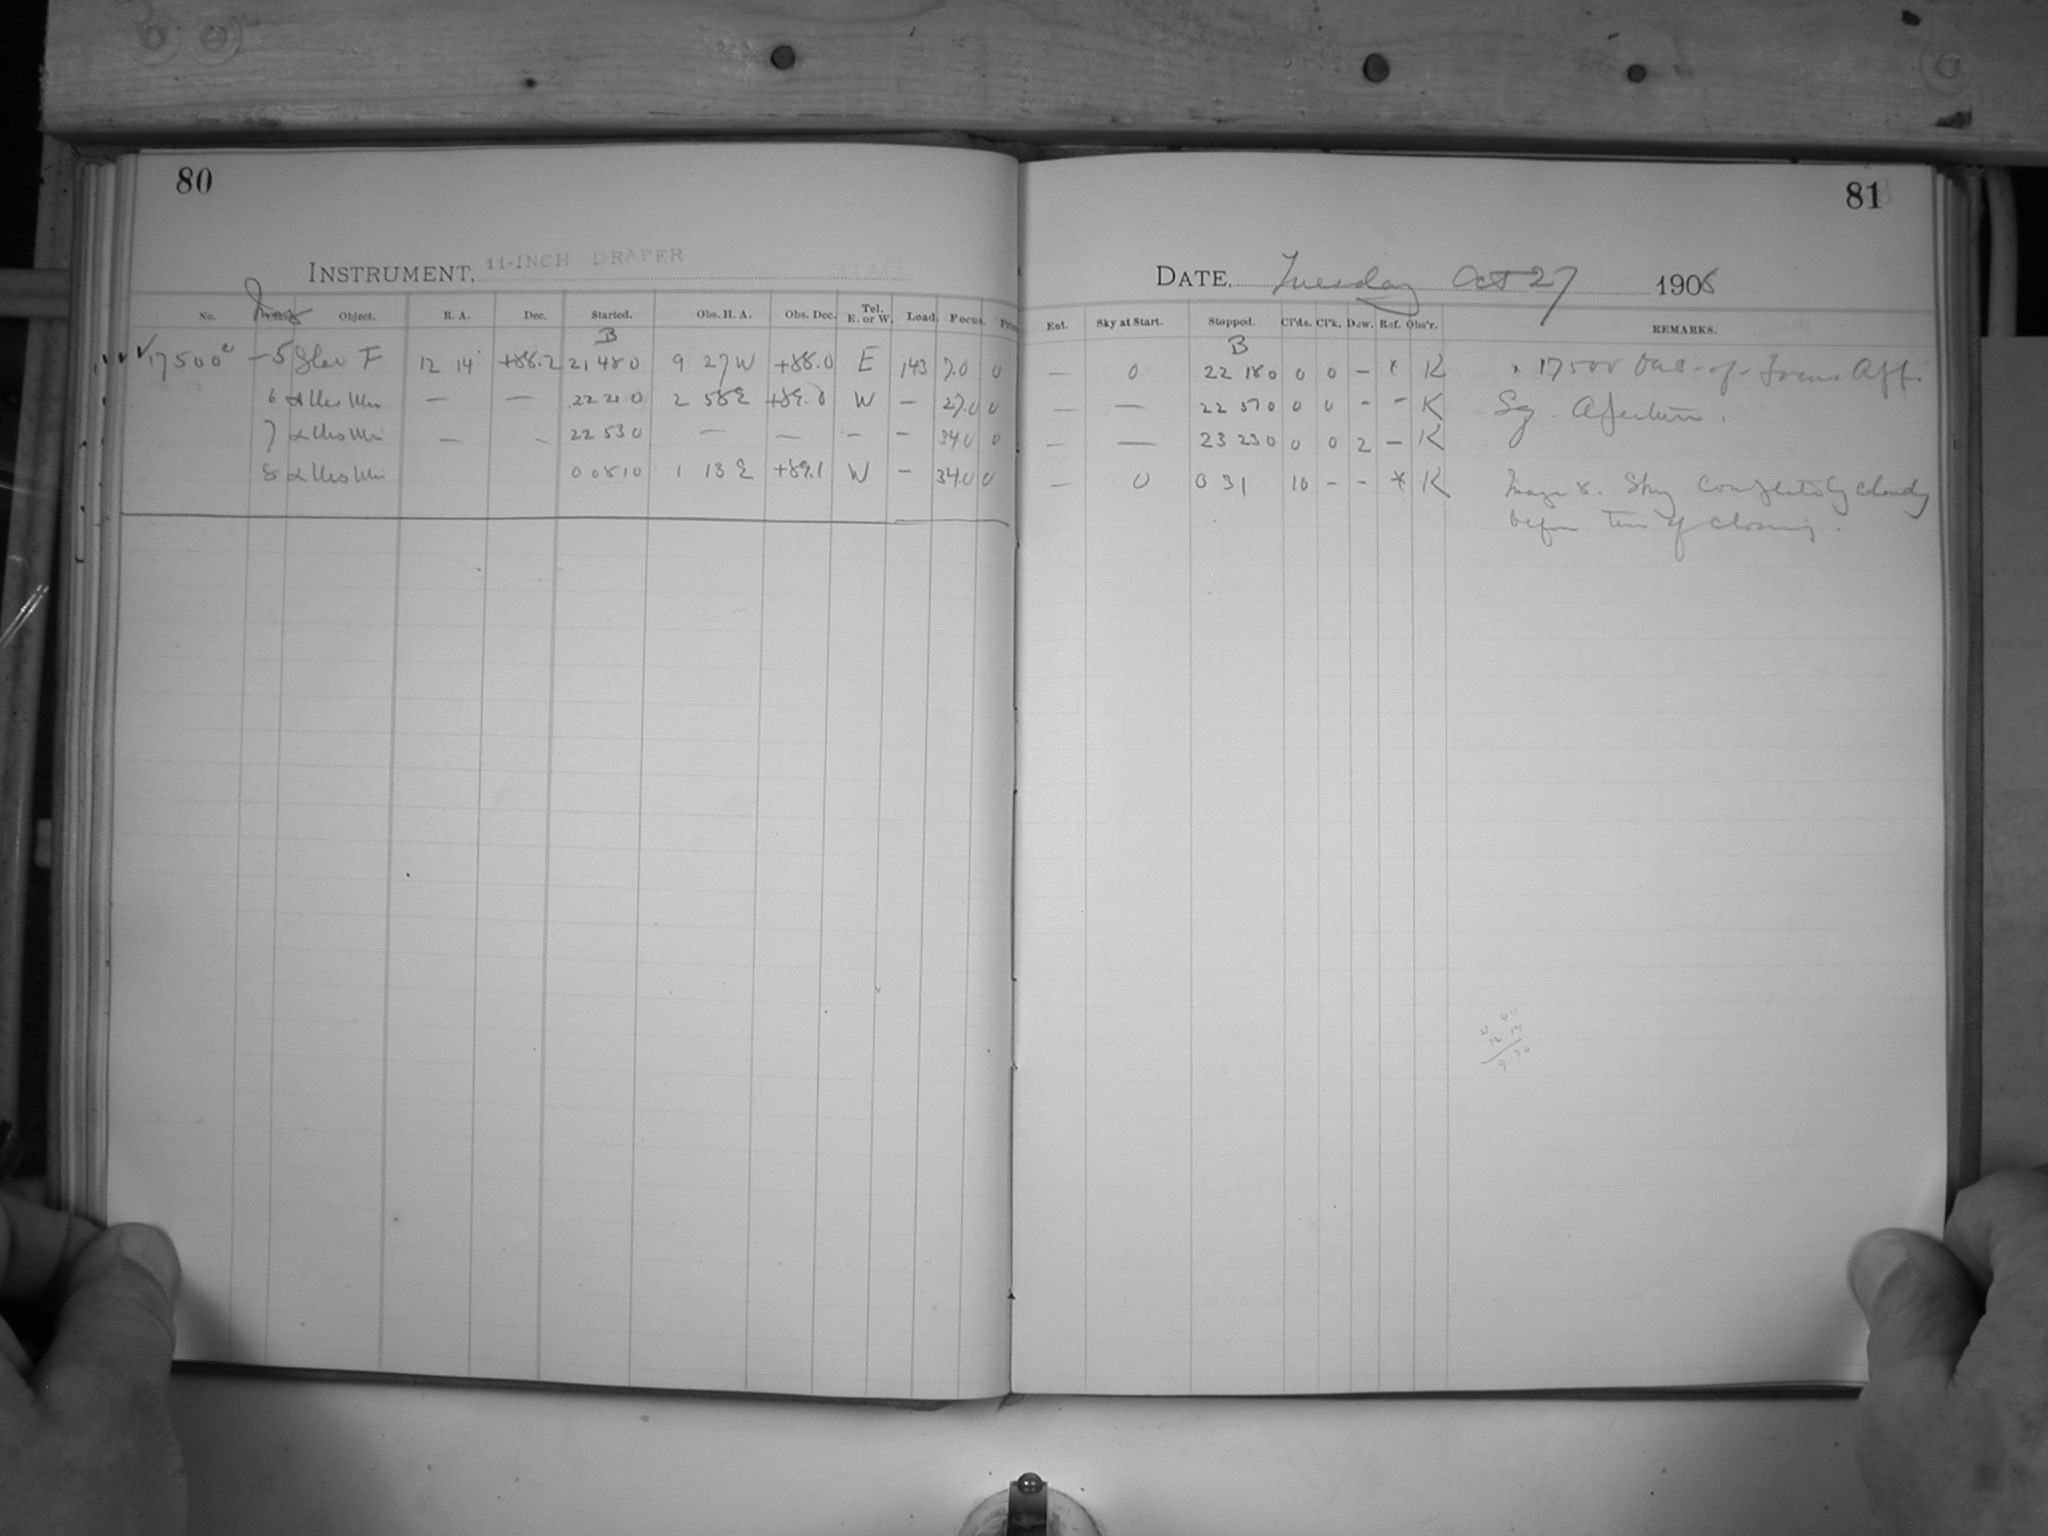 80
INSTRUMENT, 11-INCH DRAPER
No. Object. R. A. Dec. Started. Obs. H. A. Obs. Dec. Tel. E. or W. Load. Focus.
B
17500 - 5 F 12 14 +88.2 21 48 0 9 27 W +88.0 E 143 7.0 0
6 α — — 22 2 0 2 58 E W — 27.0 0
7 α — — 22 53 0 — — — — 34.0 0
8 α 0 08 10 1 13 E +89.1 W — 34.0 0
81
DATE, Tuesday Oct 27 1908
Ent. Sky at Start. Stopped. Cl'ds. Cl'k. Dew. Ref. Obs'r. REMARKS.
B
— 0 22 18 0 0 0 - * K * 17500 Out-of-Focus
— — 22 57 0 0 0 - - K Sq. Aperture.
— — 23 23 0 0 0 2 — K
— 0 0 31 10 - - * K Image 8. Sky completely cloudy
before time of closing.